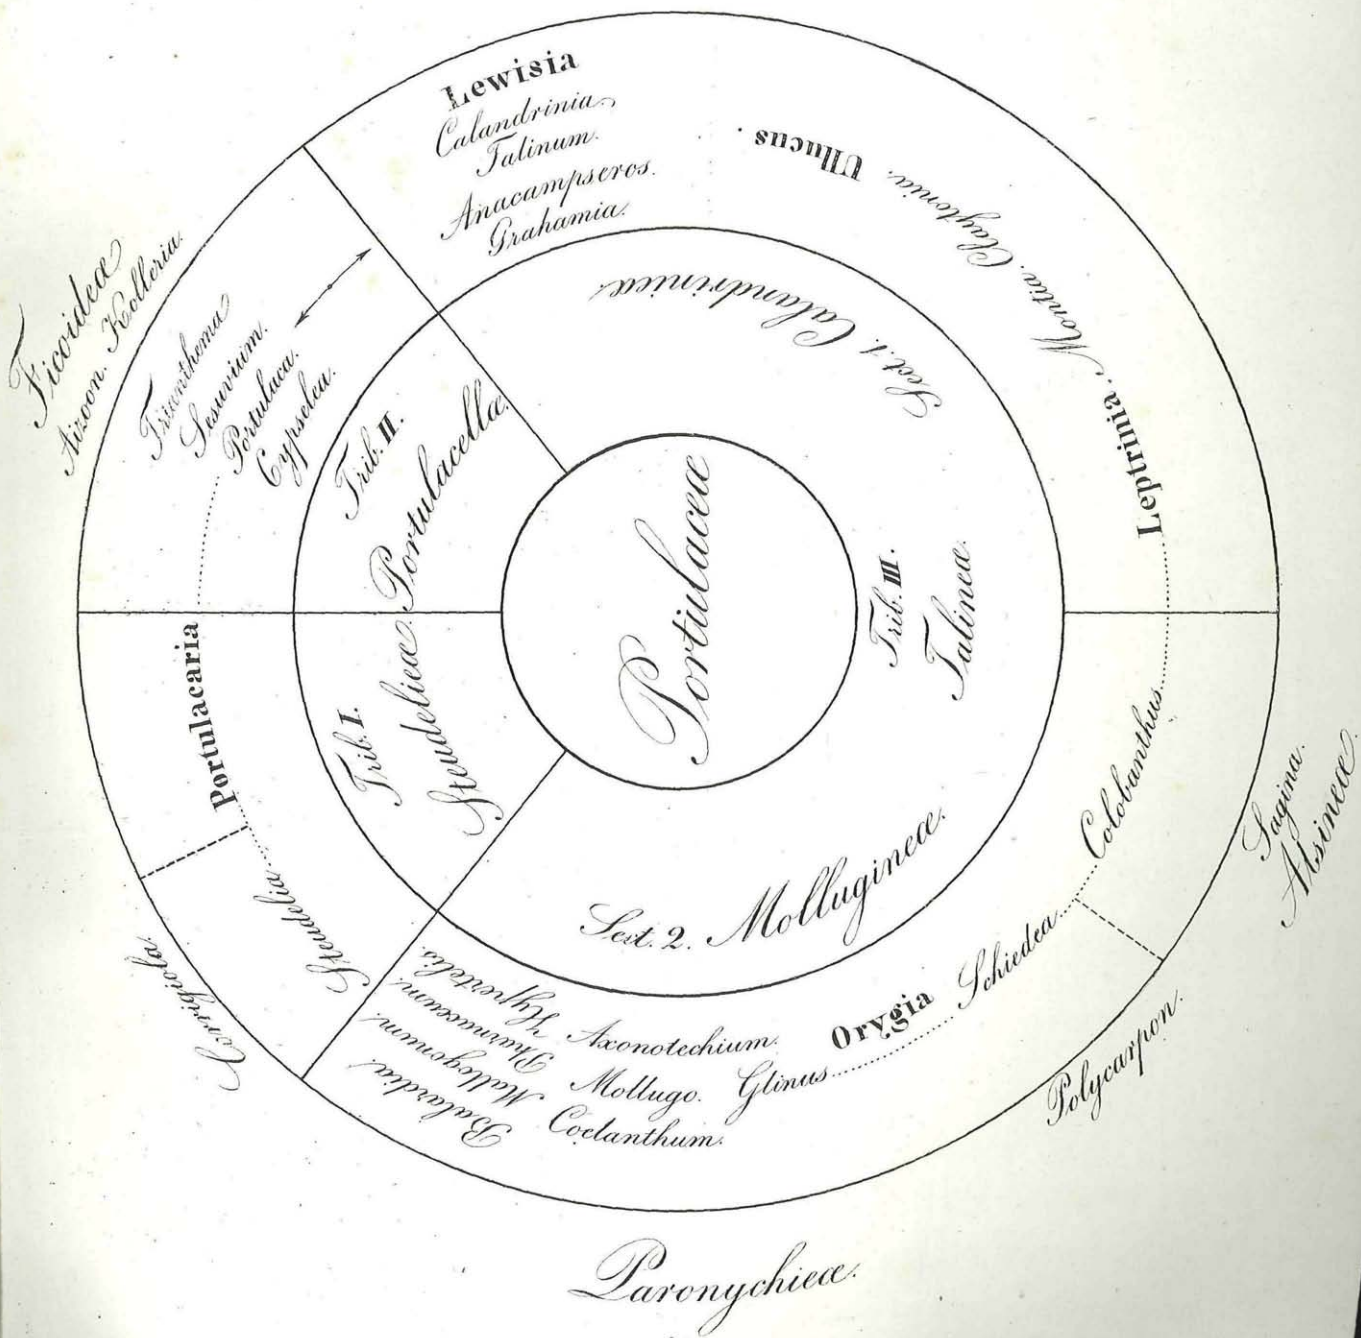 Portulaceæ
Trib. I.
Steudelieæ.
Trib. II.
Portulacellæ.
Trib. III.
Talineæ.
Sect. 1. Calandrinieæ.
Sect. 2. Mollugineæ.
Lewisia
Calandrinia.
Talinum.
Anacampseros.
Grahamia.
Leptrinia. Montia. Claytonia. Ullucus.
Trianthema
Sesuvium.
Portulaca.
Cypselea.
Portulacaria
Steudelia
Hypertelis.
Pharnaceum.
Mollogonum.
Balardia.
Axonotechium.
Mollugo.
Coelanthum.
Glinus
Orygia
Schiedea
Colobanthus
Ficoideæ
Aizoon. Kolleria.
Corrigiola.
Paronychieæ.
Polycarpon.
Sagina.
Alsineæ.